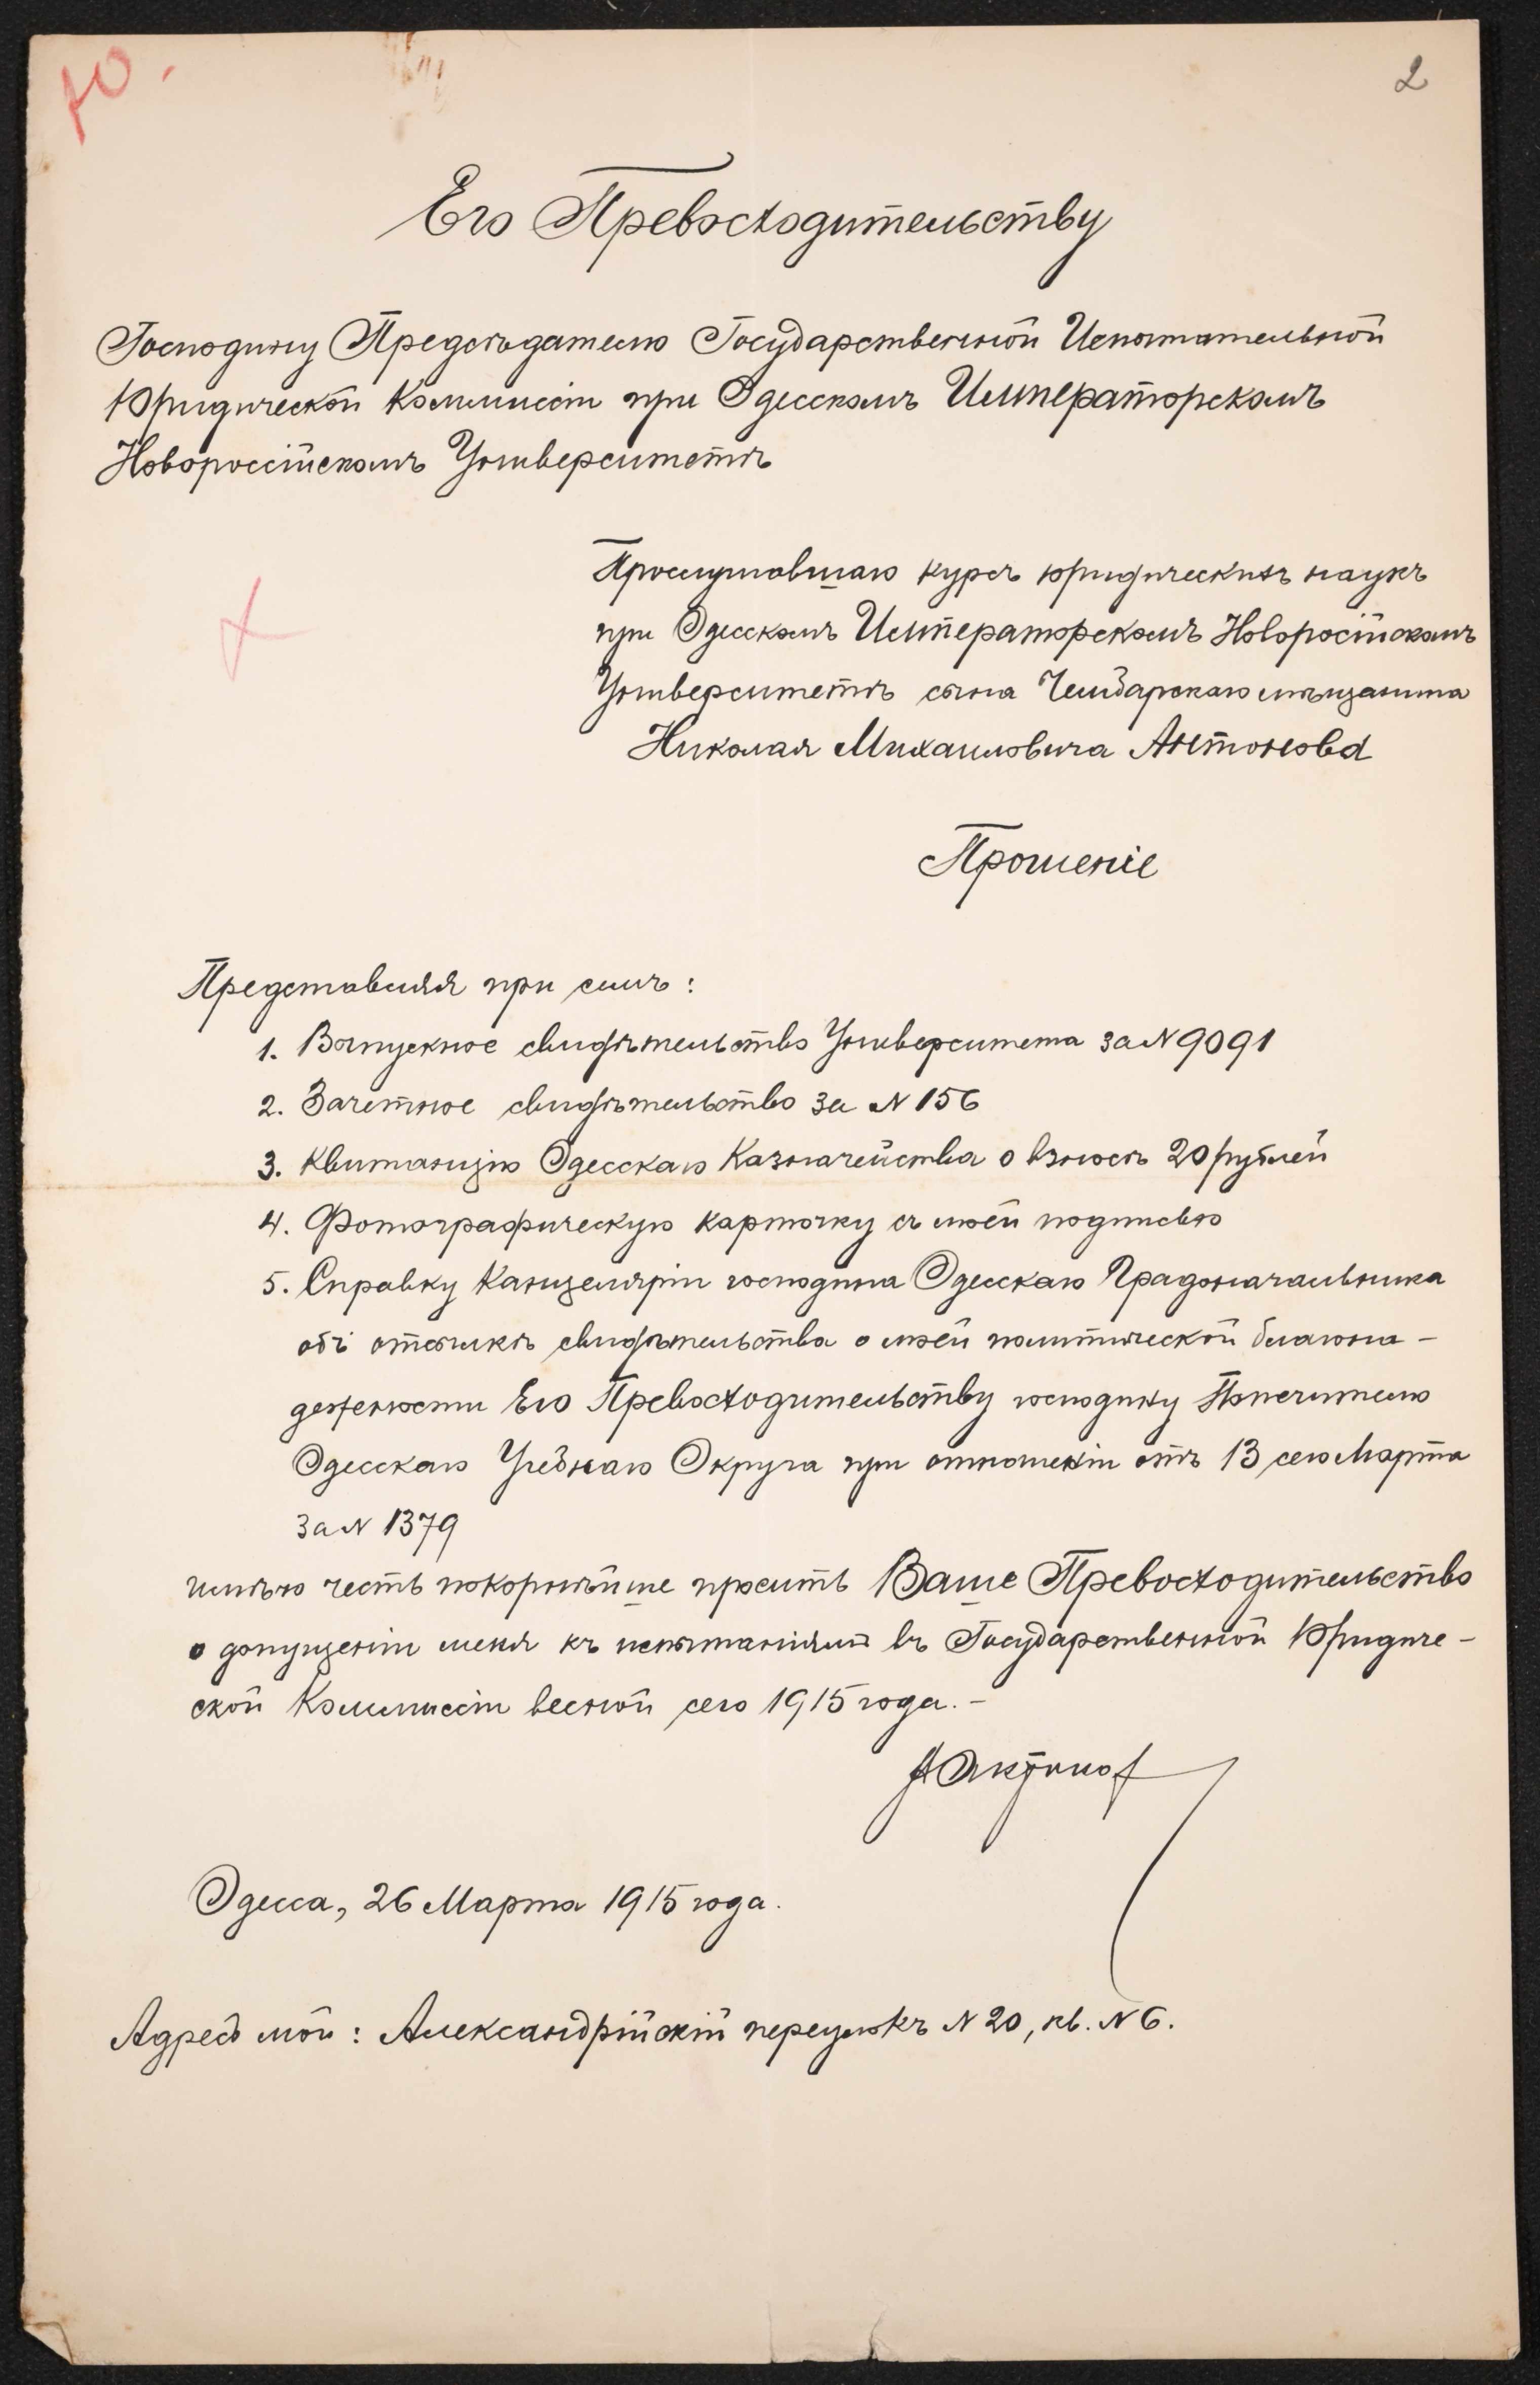 Ю.
2
Его Превосходительству
Господину Председателю Государственной Испытательной
Юридической Коммиссіи при Одесскомъ Императорскомъ
Новороссійскомъ Университетѣ
Прослушавшаго курсъ юридическихъ наукъ
при Одесскомъ Императорскомъ Новоросійскомъ
Университетѣ сына Чембарскаго мѣщанина
Николая Михаиловича Антонова
Прошеніе
Представляя при семъ:
1. Выпускное свидѣтельство Университета за N 9091
2. Зачетное свидѣтельство за N 156
3. Квитанцію Одесскаго Казначейства о взносѣ 20 рублей
4. Фотографическую карточку съ моей подписью
5. Справку Канцеляріи господина Одесскаго Градоначальника
объ отсылкѣ свидѣтельства о моей политической благона-
дежности Его Превосходительству господину Попечителю
Одесскаго Учебнаго Округа при отношеніи отъ 13 сего Марта
за N 1379
имѣю честь покорнѣйше просить Ваше Превосходительство
о допущеніи меня къ испытаніямъ въ Государственной Юридиче-
ской Коммиссіи весной сего 1915 года.-
НАнтонов
Одесса, 26 Марта 1915 года.
Адресъ мой: Александрійскій переулокъ N 20, кв. N 6.